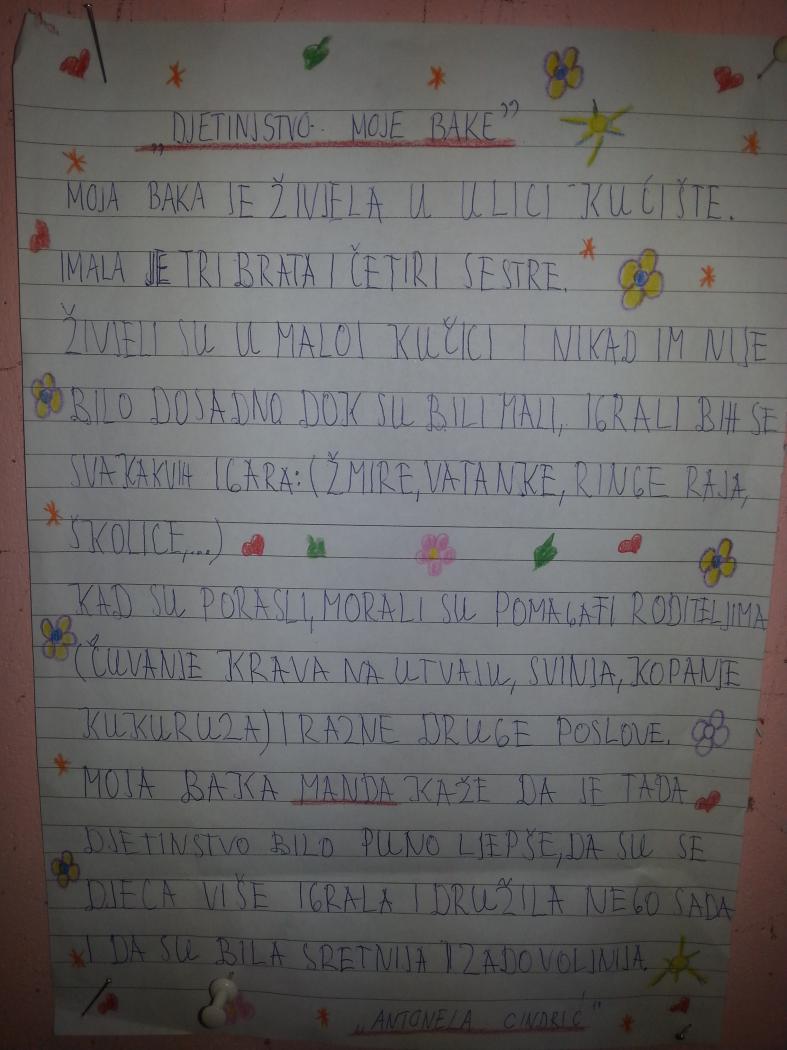 „DJETINJSTVO MOJE BAKE”
MOJA BAKA JE ŽIVJELA U ULICI KUĆIŠTE.
IMALA JE TRI BRATA I ČETIRI SESTRE.
ŽIVJELI SU U MALOJ KUČICI I NIKAD IM NIJE
BILO DOSADNO DOK SU BILI MALI, IGRALI BIH SE
SVAKAKVIH IGARA: (ŽMIRE, VATANKE, RINGE RAJA,
ŠKOLICE,...)
KAD SU PORASLI, MORALI SU POMAGATI RODITELJIMA
(ČUVANJE KRAVA NA UTVAJU, SVINJA, KOPANJE
KUKURUZA) I RAZNE DRUGE POSLOVE.
MOJA BAKA MANDA KAŽE DA JE TADA
DJETINSTVO BILO PUNO LJEPŠE, DA SU SE
DJECA VIŠE IGRALA I DRUŽILA NEGO SADA
I DA SU BILA SRETNIJA I ZADOVOLJNIJA.
„ANTONELA CINDRIĆ”